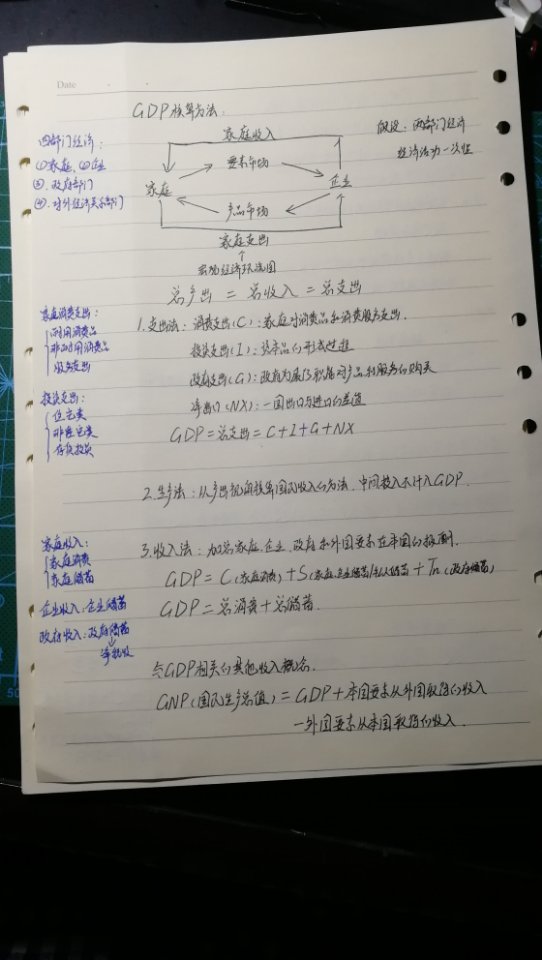 Date
GDP核算方法:
四部门经济:
①家庭、②企业
③.政府部门
④.对外经济关系部门
家庭收入
要素市场
家庭
企业
产品市场
家庭支出
宏观经济环流图
假设:两部门经济
经济活动一次性
总产出 = 总收入 = 总支出
家庭消费支出:
耐用消费品
非耐用消费品
服务支出
投资支出:
住宅类
非住宅类
存货投资
1.支出法:消费支出(C):家庭对消费品和消费服务支出.
投资支出(I):资本品的形成过程
政府支出(G):政府为履行职能对产品和服务的购买
净出口(NX):一国出口与进口的差值
GDP=总支出=C+I+G+NX
2.生产法:从产出视角核算国民收入的方法.中间投入不计入GDP.
家庭收入:
家庭消费
家庭储蓄
企业收入:企业储蓄
政府收入:政府储蓄
净税收
3.收入法:加总家庭.企业.政府和外国要素在本国的报酬.
GDP=C(家庭消费)+S(家庭.企业储蓄/私人储蓄)+Tn(政府储蓄)
GDP=总消费+总储蓄.
与GDP相关的其他收入概念.
GNP(国民生产总值)=GDP+本国要素从外国取得的收入
-外国要素从本国取得的收入.